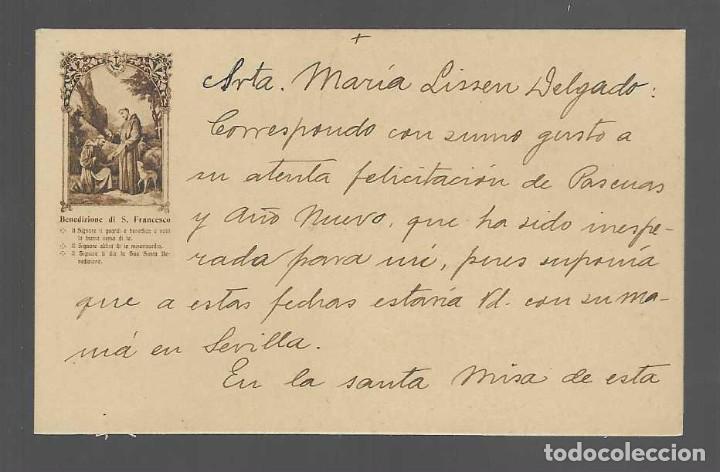 +
Srta. María Lissen Delgado:
Correspondo con sumo gusto a
su atenta felicitación de Pascuas
y Año Nuevo, que ha sido inespe-
rada para mí, pues suponía
que a estas fechas estaría Vd. con su ma-
má en Sevilla.
En la santa Misa de esta
Benedizione di S. Francesco
Il Signore ti guardi e benedica e volti
la buona verso di te.
Il Signore abbia di te misericordia.
Il Signore ti dia la Sua Santa Be-
nedizione.
todocoleccion